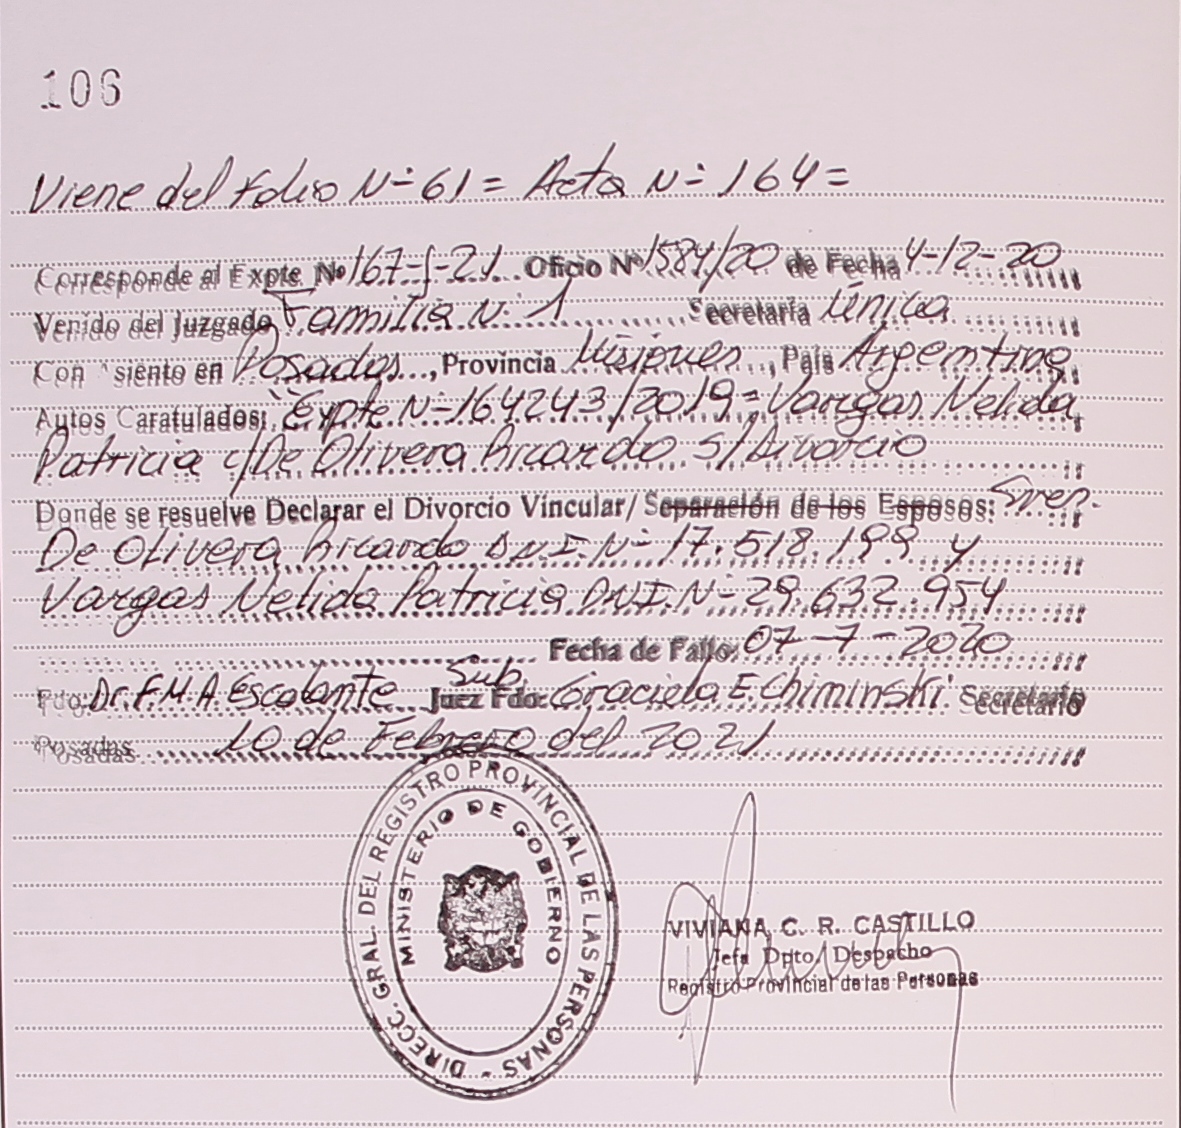 106
Viene del Folio Nº 61 = Acta Nº 164 =
Corresponde al Expte. Nº 167-J-21 Oficio Nº 1584/20 de Fecha 4-12-20
Venido del Juzgado Familia Nº 1 Secretaría Única
Con asiento en Posadas, Provincia Misiones, País Argentina
Autos Caratulados: "Expte Nº 164243/2019 = Vargas Nelida
Patricia c/De Olivera Ricardo s/Divorcio
Donde se resuelve Declarar el Divorcio Vincular/Separación de los Esposos: Sres.
De Olivera Ricardo D.N.I. Nº 17.518.199 y
Vargas Nelida Patricia D.N.I. Nº 29.632.954
Fecha de Fallo: 07-7-2020
Fdo: Dr. F.M.A. Escalante Juez Fdo: Sub Graciela E. Chiminski Secretario
Posadas 10 de Febrero del 2021
DIRECC. GRAL. DEL REGISTRO PROVINCIAL DE LAS PERSONAS -
MINISTERIO DE GOBIERNO
VIVIANA C. R. CASTILLO
Jefa Dpto Despacho
Registro Provincial de las Personas